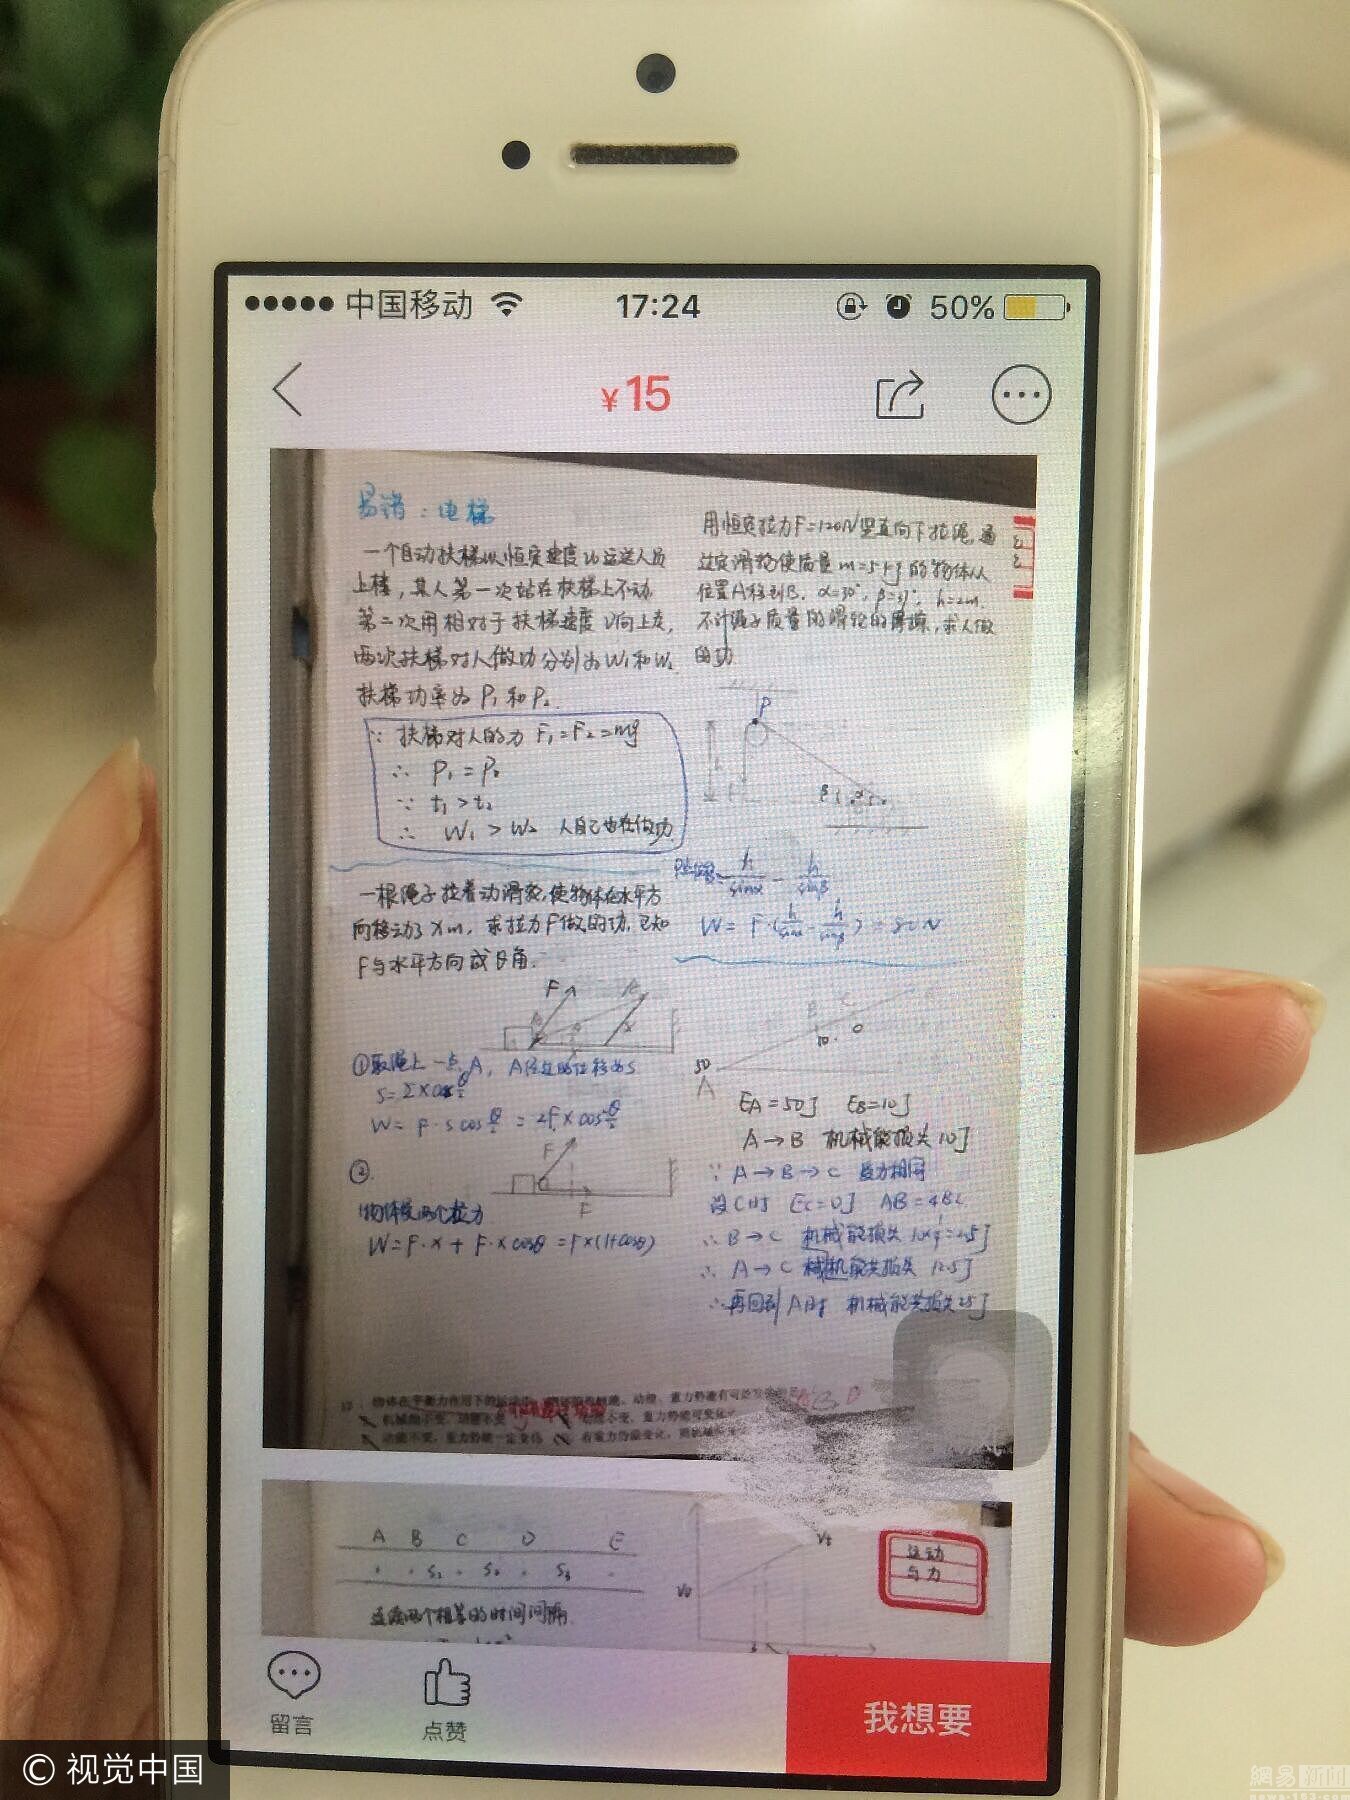 中国移动
17:24
50%
¥15
易错：电梯
一个自动扶梯以恒定速度v₀运送人员
上楼，某人第一次站在扶梯上不动
第二次用相对于扶梯速度v向上走，
两次扶梯对人做功分别为W₁和W₂
扶梯功率为P₁和P₂.
∵ 扶梯对人的力F₁=F₂=mg
∴ P₁=P₂
∵ t₁>t₂
∴ W₁>W₂ 人自己也在做功
一根绳子拉着动滑轮,使物体在水平方
向移动了xm，求拉力F做的功.已知
F与水平方向成θ角.
F
①取绳上一点A,
W=F·scosθ/2=2Fxcos²θ/2
F
②
F
物体受两个拉力
W=F·x+F·xcosθ=Fx(1+cosθ)
用恒定拉力F=120N竖直向下拉绳,通
过定滑轮使质量m=5kg的物体从
位置A移到B.α=30°,β=37°,h=2m.
不计绳子质量的滑轮的摩擦,求人做
的功
P
h/sinα-h/sinβ
W=F·(h/sinα-h/sinβ)=80N
B C
10 0
50
A
EA=50J EB=10J
A→B 机械能损失10J
∵ A→B→C 受力相同
设C时 EC=0J AB=4BC
∴ B→C 机械能损失10×¼=2.5J
∴ A→C 机械能共损失12.5J
∴再回到A时 机械能共损失25J
机械能不变，动能不变
动能不变，重力势能可变化
A B C D E
运动
与力
Vt
V₀
留言
点赞
我想要
© 视觉中国
網易新闻
news.163.com